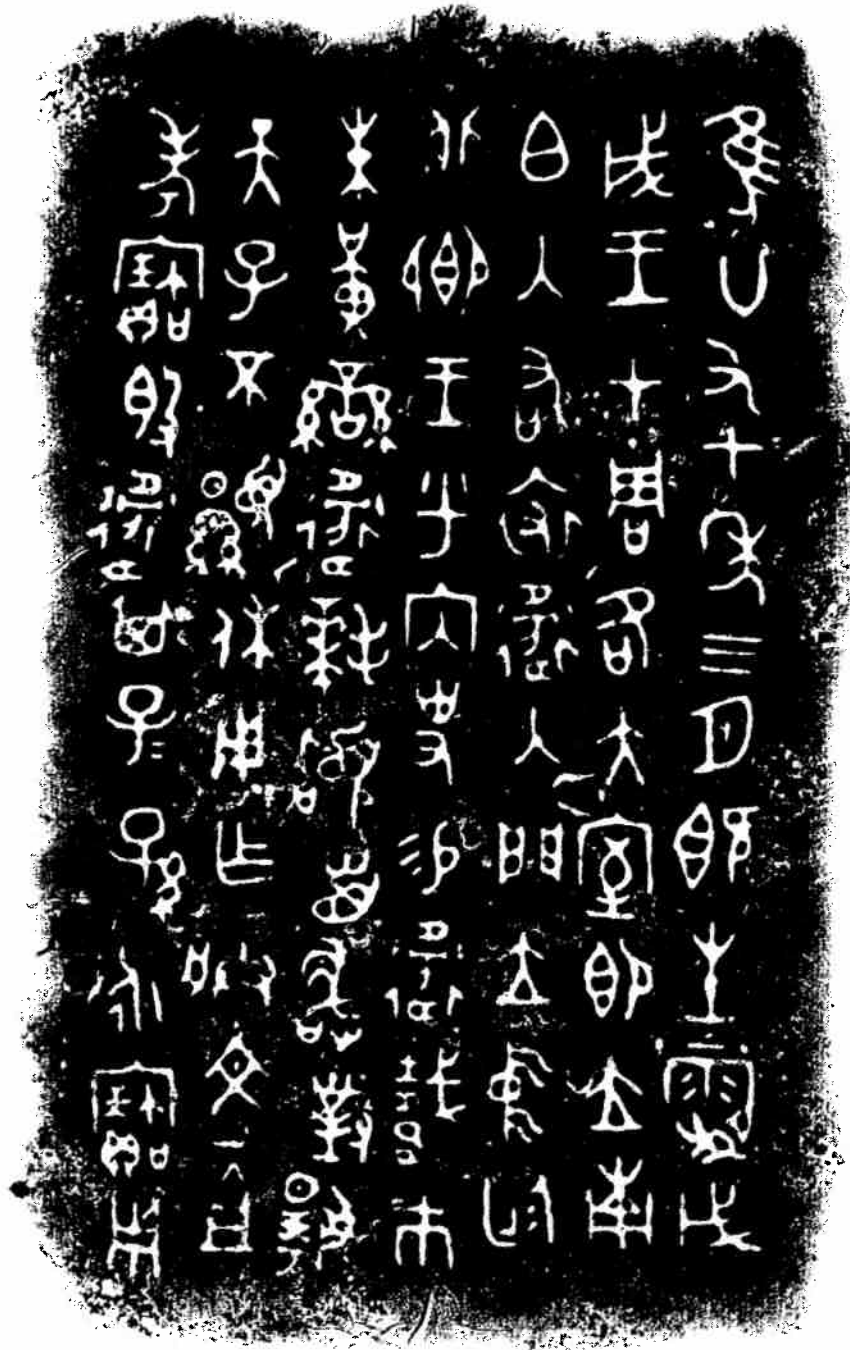 隹廿又七年三月既生霸戊
戌王才周各大室即立南
白入右裘衛入門立中廷
北鄉王乎內史易衛載巿
朱黃䜌衛拜𩒨首敢對揚
天子不顯休用乍朕文且
考寶簋衛其子子孫孫永寶用